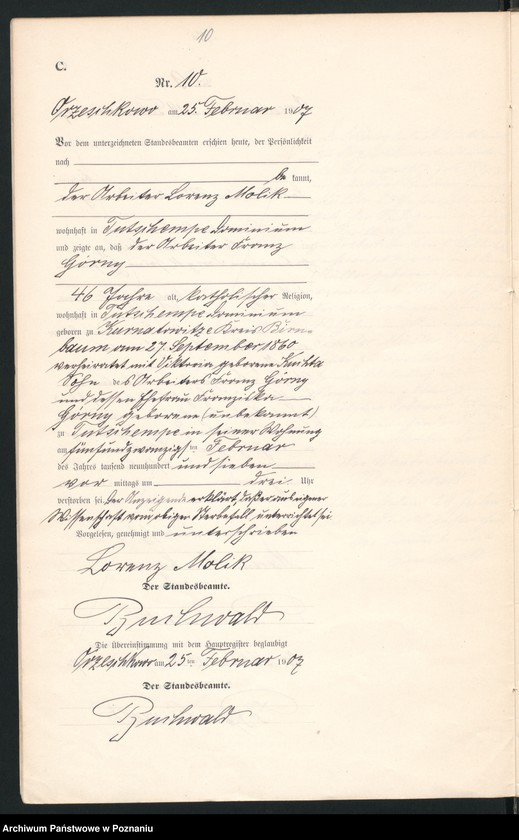 10
C.
Nr. 10.
Orzeschkowo am 25. Februar 1907
Vor dem unterzeichneten Standesbeamten erschien heute, der Persönlichkeit
nach
be kannt,
der Arbeiter Lorenz Molik
wohnhaft in Tutschempe Dominium
und zeigte an, daß der Arbeiter Franz
Górny
46 Jahre alt, katholischer Religion,
wohnhaft in Tutschempe Dominium
geboren zu Kurnatowitze Kreis Birn-
baum am 27. September 1860
verheiratet mit Viktoria geborene
Sohn des Arbeiters Franz Górny
und dessen Ehefrau Franziska
Górny geborene (unbekannt)
zu Tutschempe in seiner Wohnung
am fünfundzwanzigsten Februar
des Jahres tausend neunhundert und sieben
vor mittags um drei Uhr
verstorben sei. Der Anzeigende erklärt, daß er aus eigener
Wissenschaft vom obigen Sterbefall unterrichtet sei
Vorgelesen, genehmigt und unterschrieben
Lorenz Molik
Der Standesbeamte.
Buchwald
Die Übereinstimmung mit dem Hauptregister beglaubigt
Orzeschkowo am 25 ten Februar 1907
Der Standesbeamte.
Buchwald
Archiwum Państwowe w Poznaniu